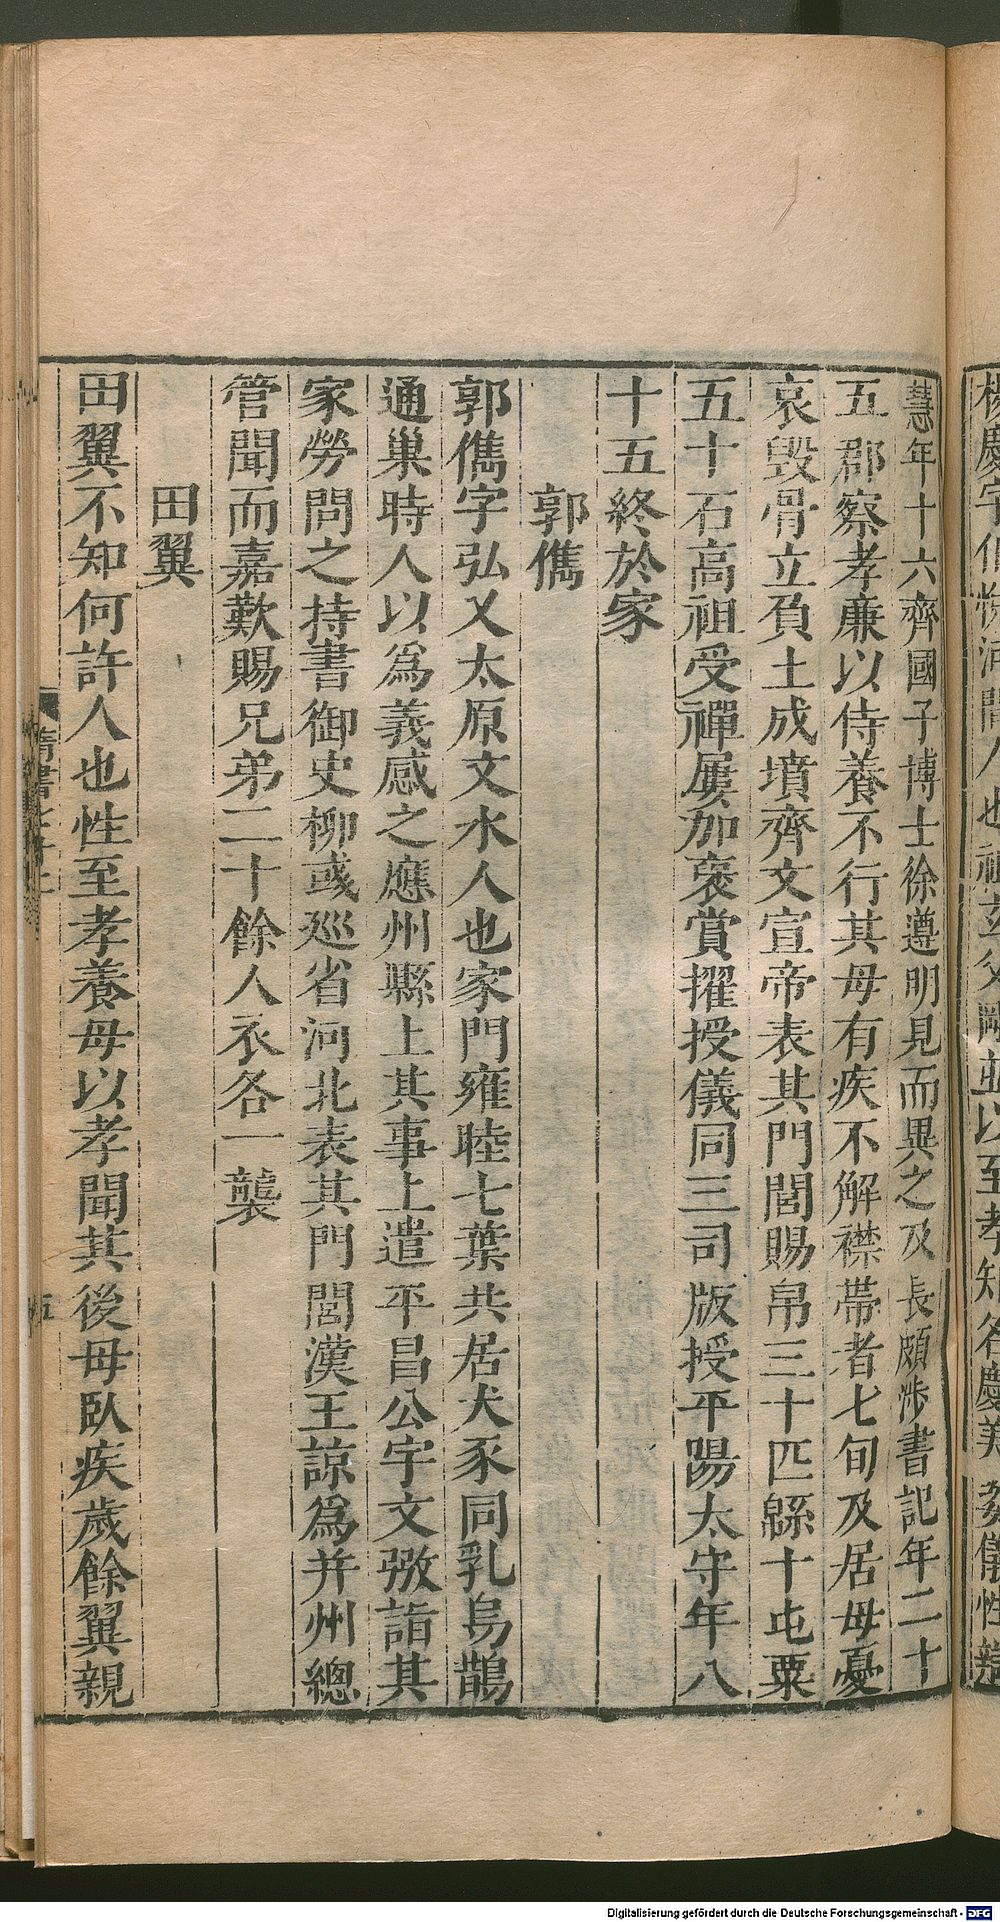 慧年十六齊國子博士徐遵明見而異之及長頗涉書記年二十
五郡察孝廉以侍養不行其母有疾不解襟帶者七旬及居母憂
哀毀骨立負土成墳齊文宣帝表其門閭賜帛三十匹緜十屯粟
五十石高祖受禪屢加褒賞擢授儀同三司版授平陽太守年八
十五終於家
郭儁
郭儁字弘乂太原文水人也家門雍睦七葉共居犬豕同乳烏鵲
通巢時人以爲義感之應州縣上其事上遣平昌公宇文㢸詣其
家勞問之持書御史柳彧巡省河北表其門閭漢王諒爲并州總
管聞而嘉歎賜兄弟二十餘人衣各一襲
田翼
田翼不知何許人也性至孝養母以孝聞其後母臥疾歲餘翼親
隋書七十二
五
Digitalisierung gefördert durch die Deutsche Forschungsgemeinschaft - DFG